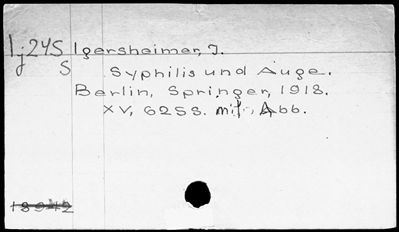 Ij245 Igersheimer, J.
S
Syphilis und Auge.
Berlin, Springer, 1918.
XV, 625S. mit, Abb.
18942